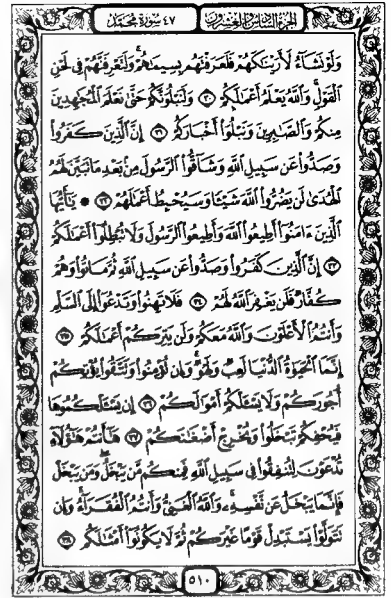 الجزء السادس والعشرون ٤٧ سورة محمد
وَلَوْ نَشَآءُ لَأَرَيْنَٰكَهُمْ فَلَعَرَفْتَهُم بِسِيمَٰهُمْ ۚ وَلَتَعْرِفَنَّهُمْ فِى لَحْنِ
ٱلْقَوْلِ ۚ وَٱللَّهُ يَعْلَمُ أَعْمَٰلَكُمْ ۝٣٠ وَلَنَبْلُوَنَّكُمْ حَتَّىٰ نَعْلَمَ ٱلْمُجَٰهِدِينَ
مِنكُمْ وَٱلصَّٰبِرِينَ وَنَبْلُوَا۟ أَخْبَارَكُمْ ۝٣١ إِنَّ ٱلَّذِينَ كَفَرُوا۟
وَصَدُّوا۟ عَن سَبِيلِ ٱللَّهِ وَشَآقُّوا۟ ٱلرَّسُولَ مِنۢ بَعْدِ مَا تَبَيَّنَ لَهُمُ
ٱلْهُدَىٰ لَن يَضُرُّوا۟ ٱللَّهَ شَيْـًٔا وَسَيُحْبِطُ أَعْمَٰلَهُمْ ۝٣٢ ۞ يَٰٓأَيُّهَا
ٱلَّذِينَ ءَامَنُوٓا۟ أَطِيعُوا۟ ٱللَّهَ وَأَطِيعُوا۟ ٱلرَّسُولَ وَلَا تُبْطِلُوٓا۟ أَعْمَٰلَكُمْ
۝٣٣ إِنَّ ٱلَّذِينَ كَفَرُوا۟ وَصَدُّوا۟ عَن سَبِيلِ ٱللَّهِ ثُمَّ مَاتُوا۟ وَهُمْ
كُفَّارٌ فَلَن يَغْفِرَ ٱللَّهُ لَهُمْ ۝٣٤ فَلَا تَهِنُوا۟ وَتَدْعُوٓا۟ إِلَى ٱلسَّلْمِ
وَأَنتُمُ ٱلْأَعْلَوْنَ وَٱللَّهُ مَعَكُمْ وَلَن يَتِرَكُمْ أَعْمَٰلَكُمْ ۝٣٥
إِنَّمَا ٱلْحَيَوٰةُ ٱلدُّنْيَا لَعِبٌ وَلَهْوٌ ۚ وَإِن تُؤْمِنُوا۟ وَتَتَّقُوا۟ يُؤْتِكُمْ
أُجُورَكُمْ وَلَا يَسْـَٔلْكُمْ أَمْوَٰلَكُمْ ۝٣٦ إِن يَسْـَٔلْكُمُوهَا
فَيُحْفِكُمْ تَبْخَلُوا۟ وَيُخْرِجْ أَضْغَٰنَكُمْ ۝٣٧ هَٰٓأَنتُمْ هَٰٓؤُلَآءِ
تُدْعَوْنَ لِتُنفِقُوا۟ فِى سَبِيلِ ٱللَّهِ فَمِنكُم مَّن يَبْخَلُ ۖ وَمَن يَبْخَلْ
فَإِنَّمَا يَبْخَلُ عَن نَّفْسِهِۦ ۚ وَٱللَّهُ ٱلْغَنِىُّ وَأَنتُمُ ٱلْفُقَرَآءُ ۚ وَإِن
تَتَوَلَّوْا۟ يَسْتَبْدِلْ قَوْمًا غَيْرَكُمْ ثُمَّ لَا يَكُونُوٓا۟ أَمْثَٰلَكُم ۝٣٨
٥١٠